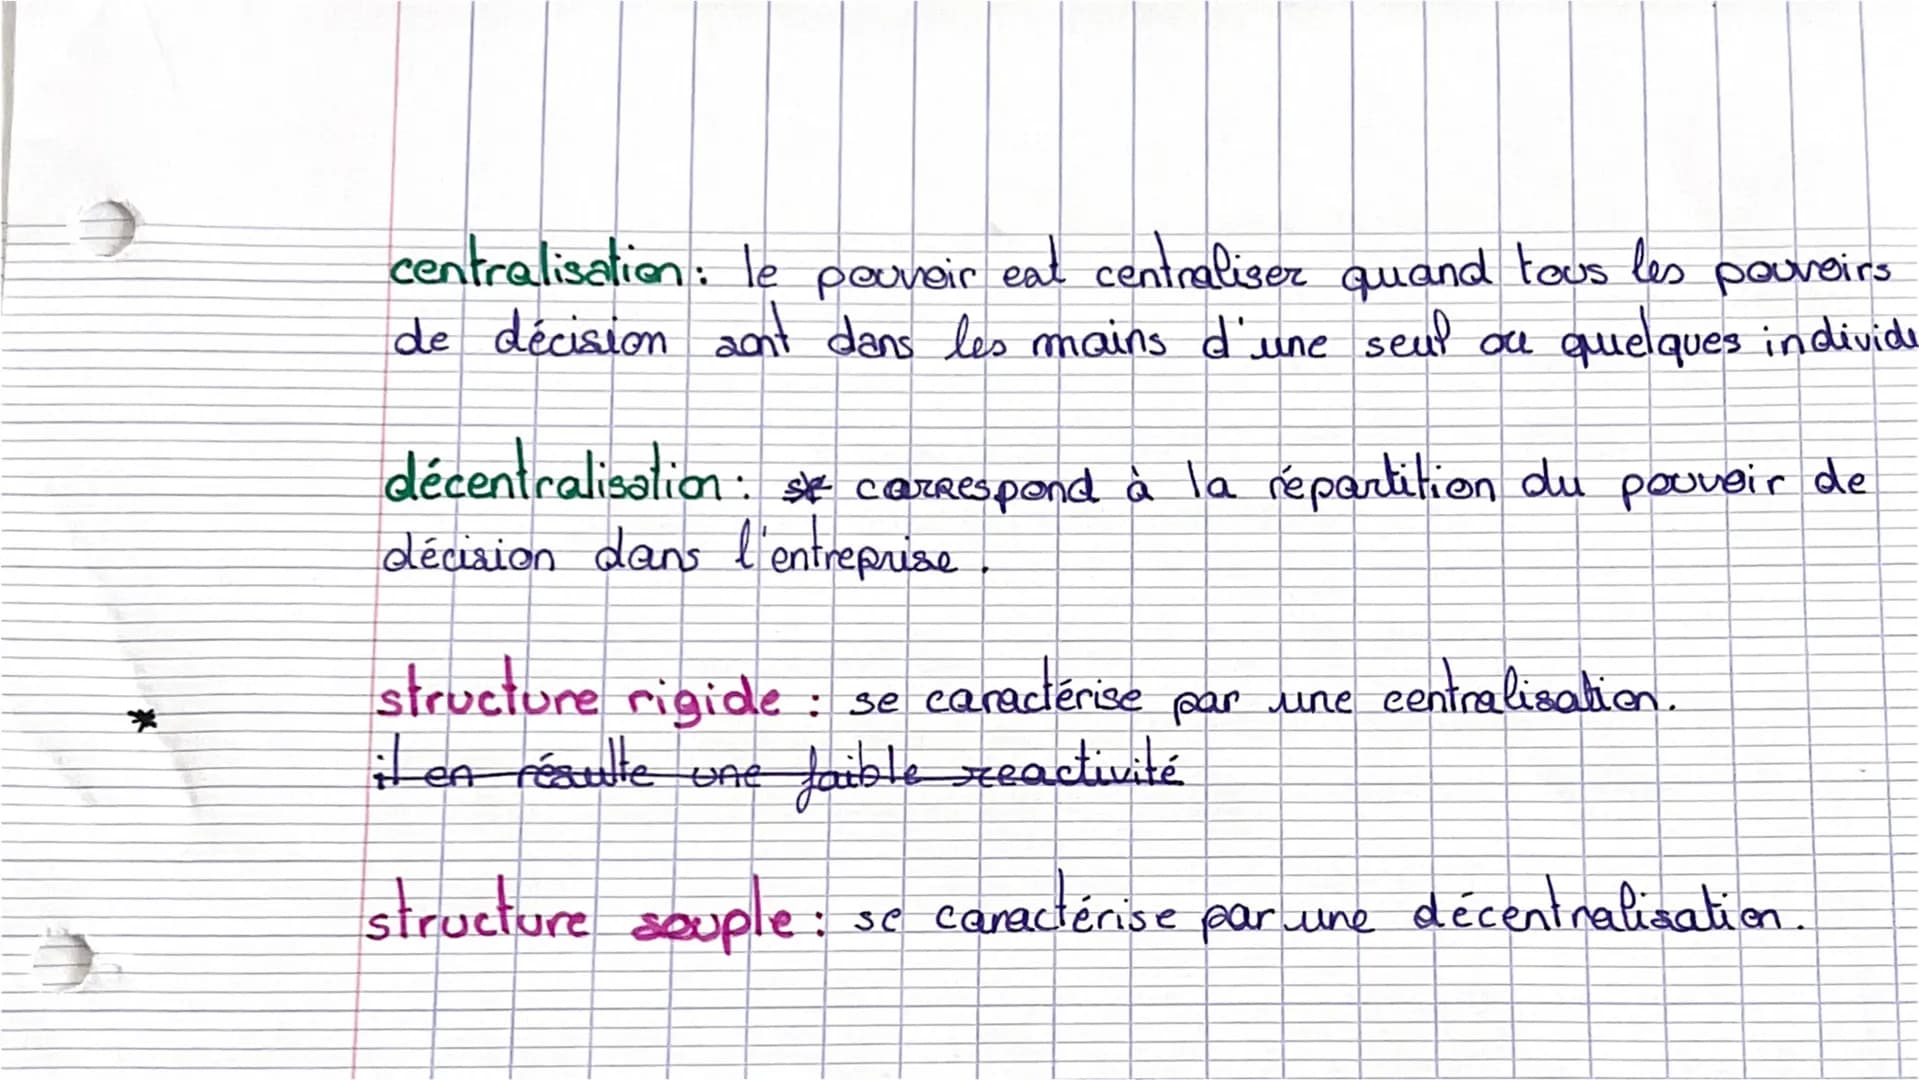 centralisation : le pouvoir est centraliser quand tous les pouvoirs
de décision sont dans les mains d'une seul ou quelques individu
décentralisation : se correspond à la répartition du pouvoir de
décision dans l'entreprise.
structure rigide : se caractérise par une centralisation.
* il en résulte une faible reactivité
structure souple : se caractérise par une décentralisation.